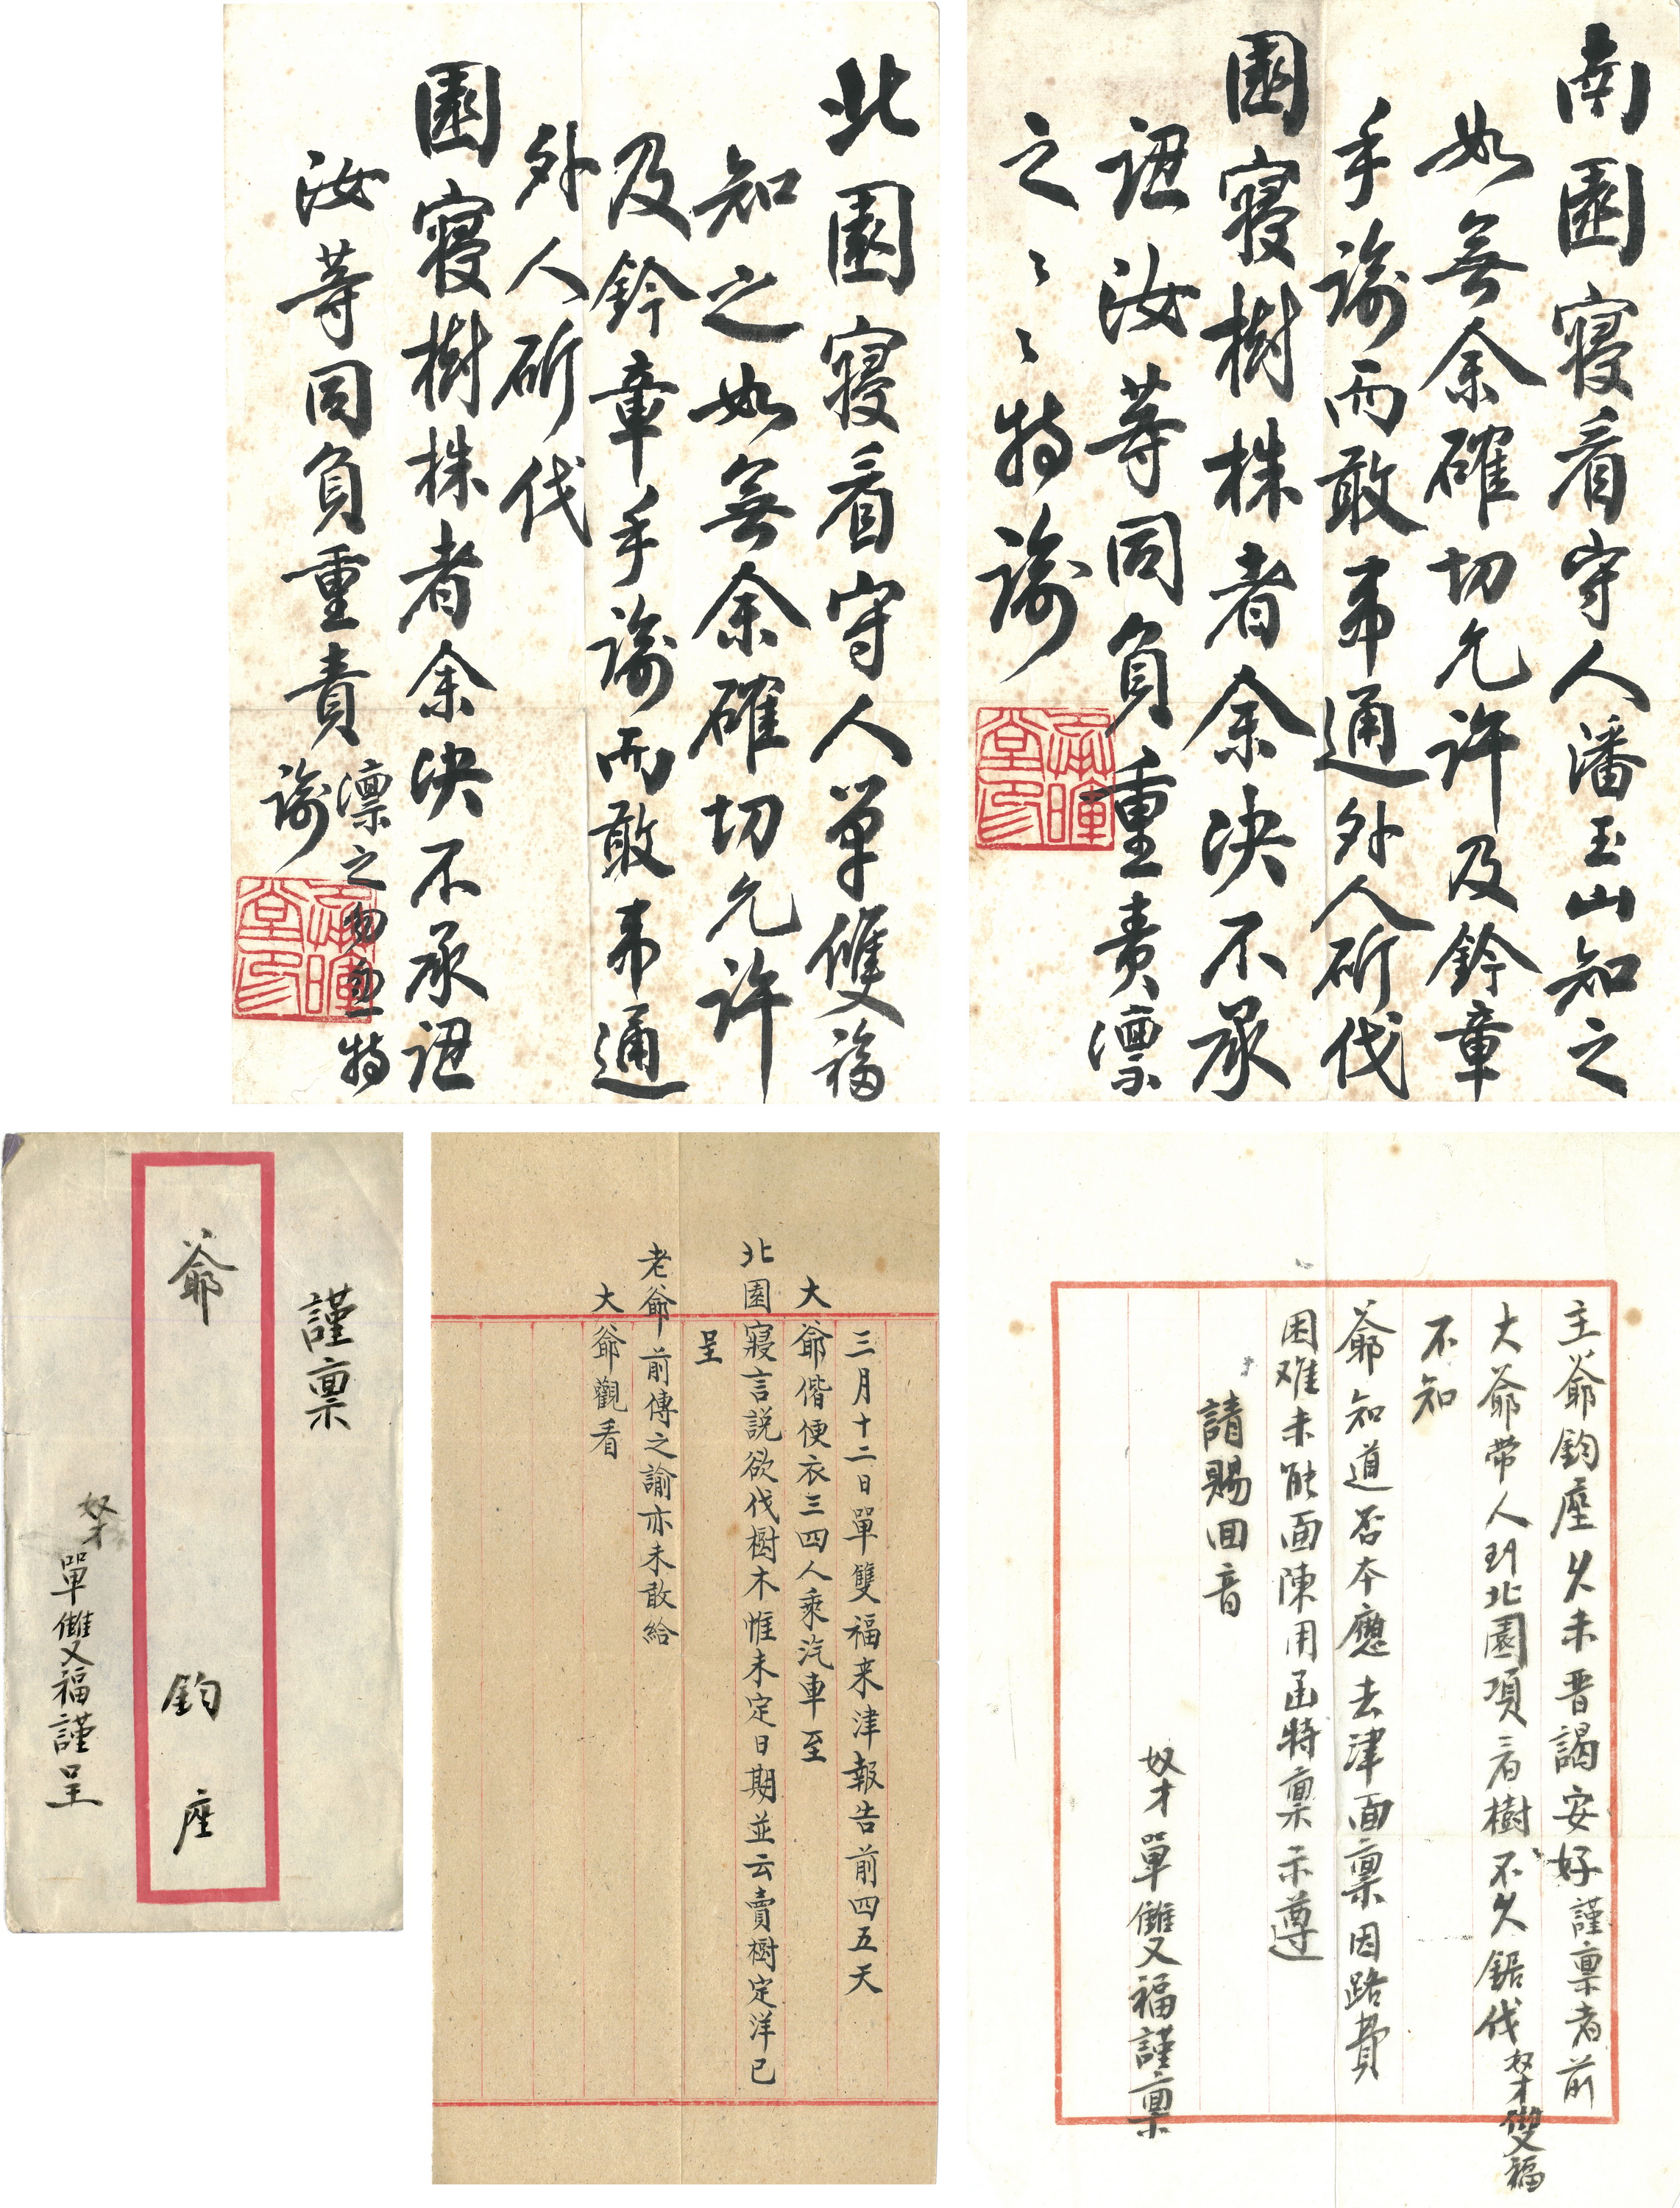 南園寢看守人潘玉山知之
如無余確切允許及鈐章
手諭而敢串通外人斫伐
園寢樹株者余決不承
認汝等同負重責凛
之〻〻特諭
北園寢看守人單雙福
知之如無余確切允許
及鈐章手諭而敢串通
外人斫伐
園寢樹株者余決不承認
汝等同負重責凛之勿忽特
諭
主爺鈞座久未晋謁安好謹禀者前
大爺带人到北園項看樹不久鋸伐奴才雙福
不知
爺知道否本應去津面禀因路費
困难未能面陳用函特禀示遵
請賜回音
奴才單雙福謹禀
三月十二日單雙福来津報告前四五天
大爺偕便衣三四人乘汽車至
北園寢言説欲伐樹木惟未定日期並云賣樹定洋已
呈
老爺前傳之諭亦未敢給
大爺觀看
謹禀
爺 鈞座
奴才單雙福謹呈